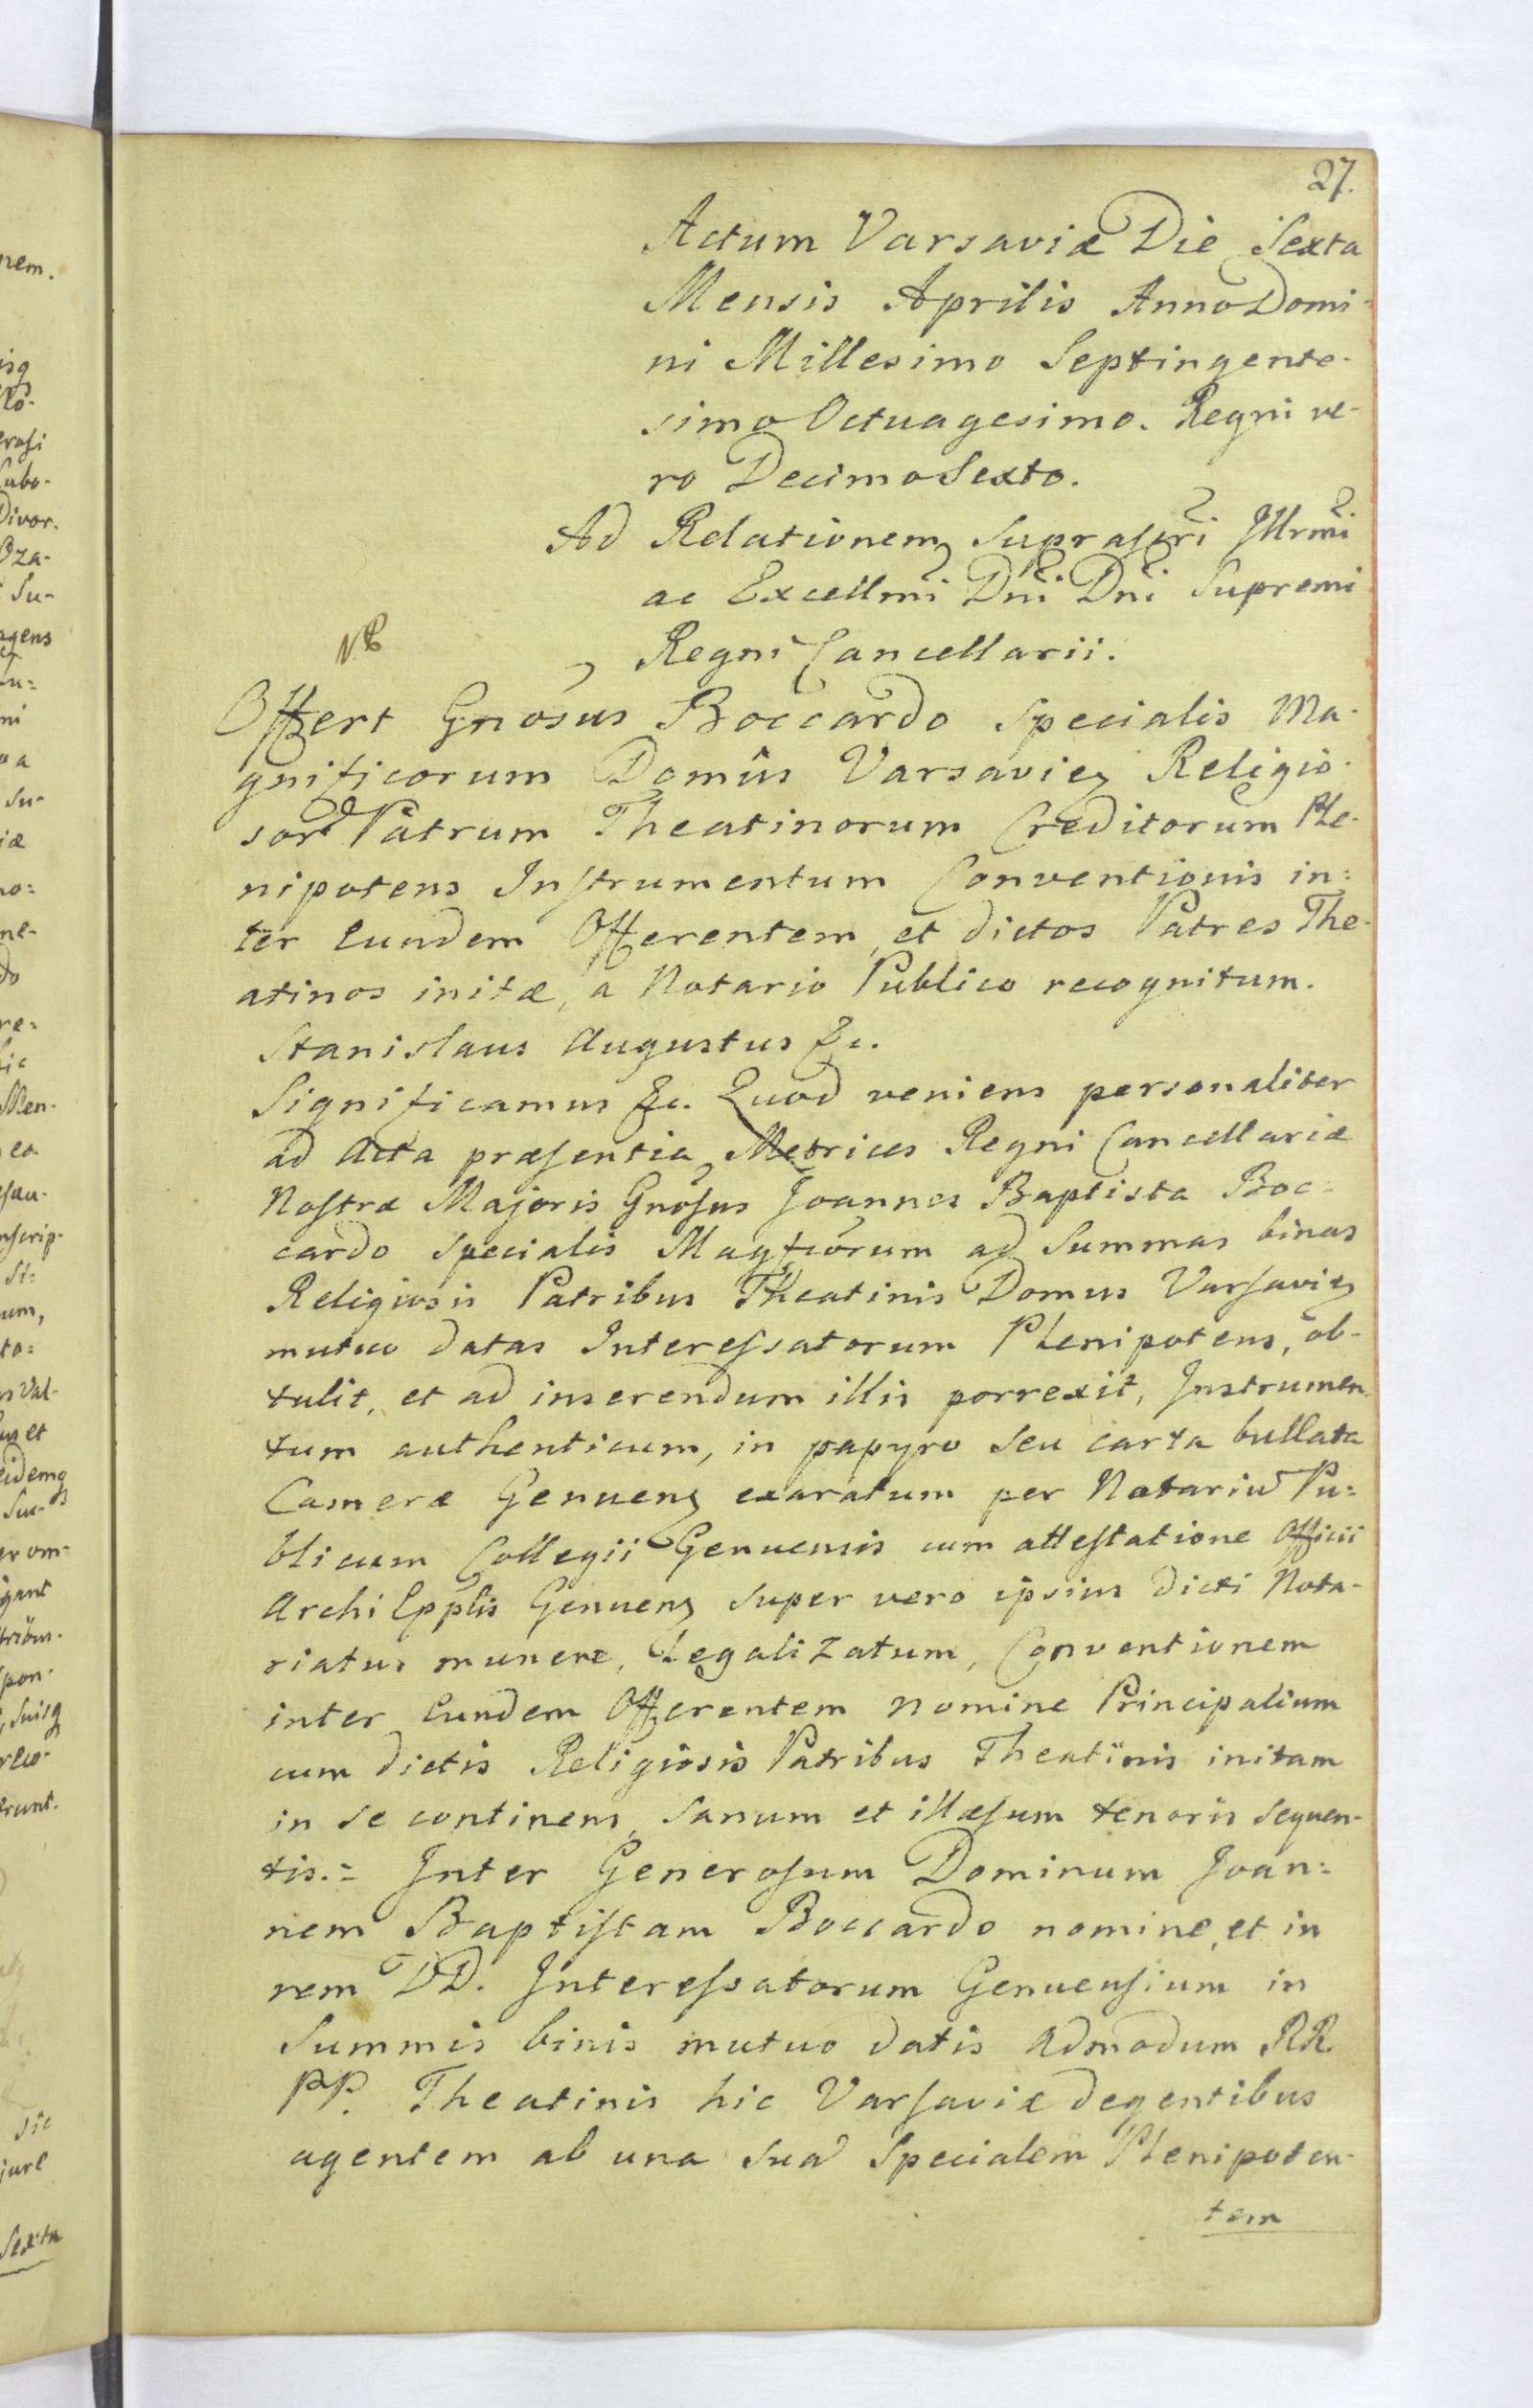 27.
Actum Varsaviæ Die Sexta
Mensis Aprilis Anno Domi-
ni Millesimo Septingente-
simo Octuagesimo. Regni ve-
ro Decimo Sexto.
Ad Relationem suprascri Illrmi
ac Excellmi Dni Dni Supremi
Regni Cancellarii.
NB
Offert Gnosus Boccardo Specialis Ma-
gnificorum Domûs Varsavien Religio-
sor Patrum Theatinorum Creditorum Ple-
nipotens Instrumentum Conventionis in=
ter Eundem Offerentem, et dictos Patres The-
atinos initæ, a Notario Publico recognitum.
Stanislaus Augustus &c.
Significamus &c. Quod veniens personaliter
ad Acta præsentia Metrices Regni Cancellariæ
Nostræ Majoris Gnosus Joannes Baptista Boc=
cardo Specialis Magficorum ad Summas binas
Religiosis Patribus Theatinis Domus Varsavien
mutuo datas Interessatorum Plenipotens, ob-
tulit, et ad inserendum illis porrexit, Instrumen
tum authenticum, in papyro seu carta bullata
Cameræ Genuens exaratum per Notariu Pu=
blicum Collegii Genuensis cum attestatione Officii
Archi Epplis Genuens super vero ipsius dicti Nota-
riatus munere, Legalizatum, Conventionem
inter Eundem Offerentem nomine Principalium
cum dictis Religiosis Patribus Theatinis initam
in se continens, sanum et illæsum tenoris sequen-
tis.= Inter Generosum Dominum Joan=
nem Baptistam Boccardo nomine, et in
rem DD. Interessatorum Genuensium in
Summis binis mutuo datis Admodum RR.
PP. Theatinis hic Varsaviæ degentibus
agentem ab una sua Specialem Plenipoten-
tem